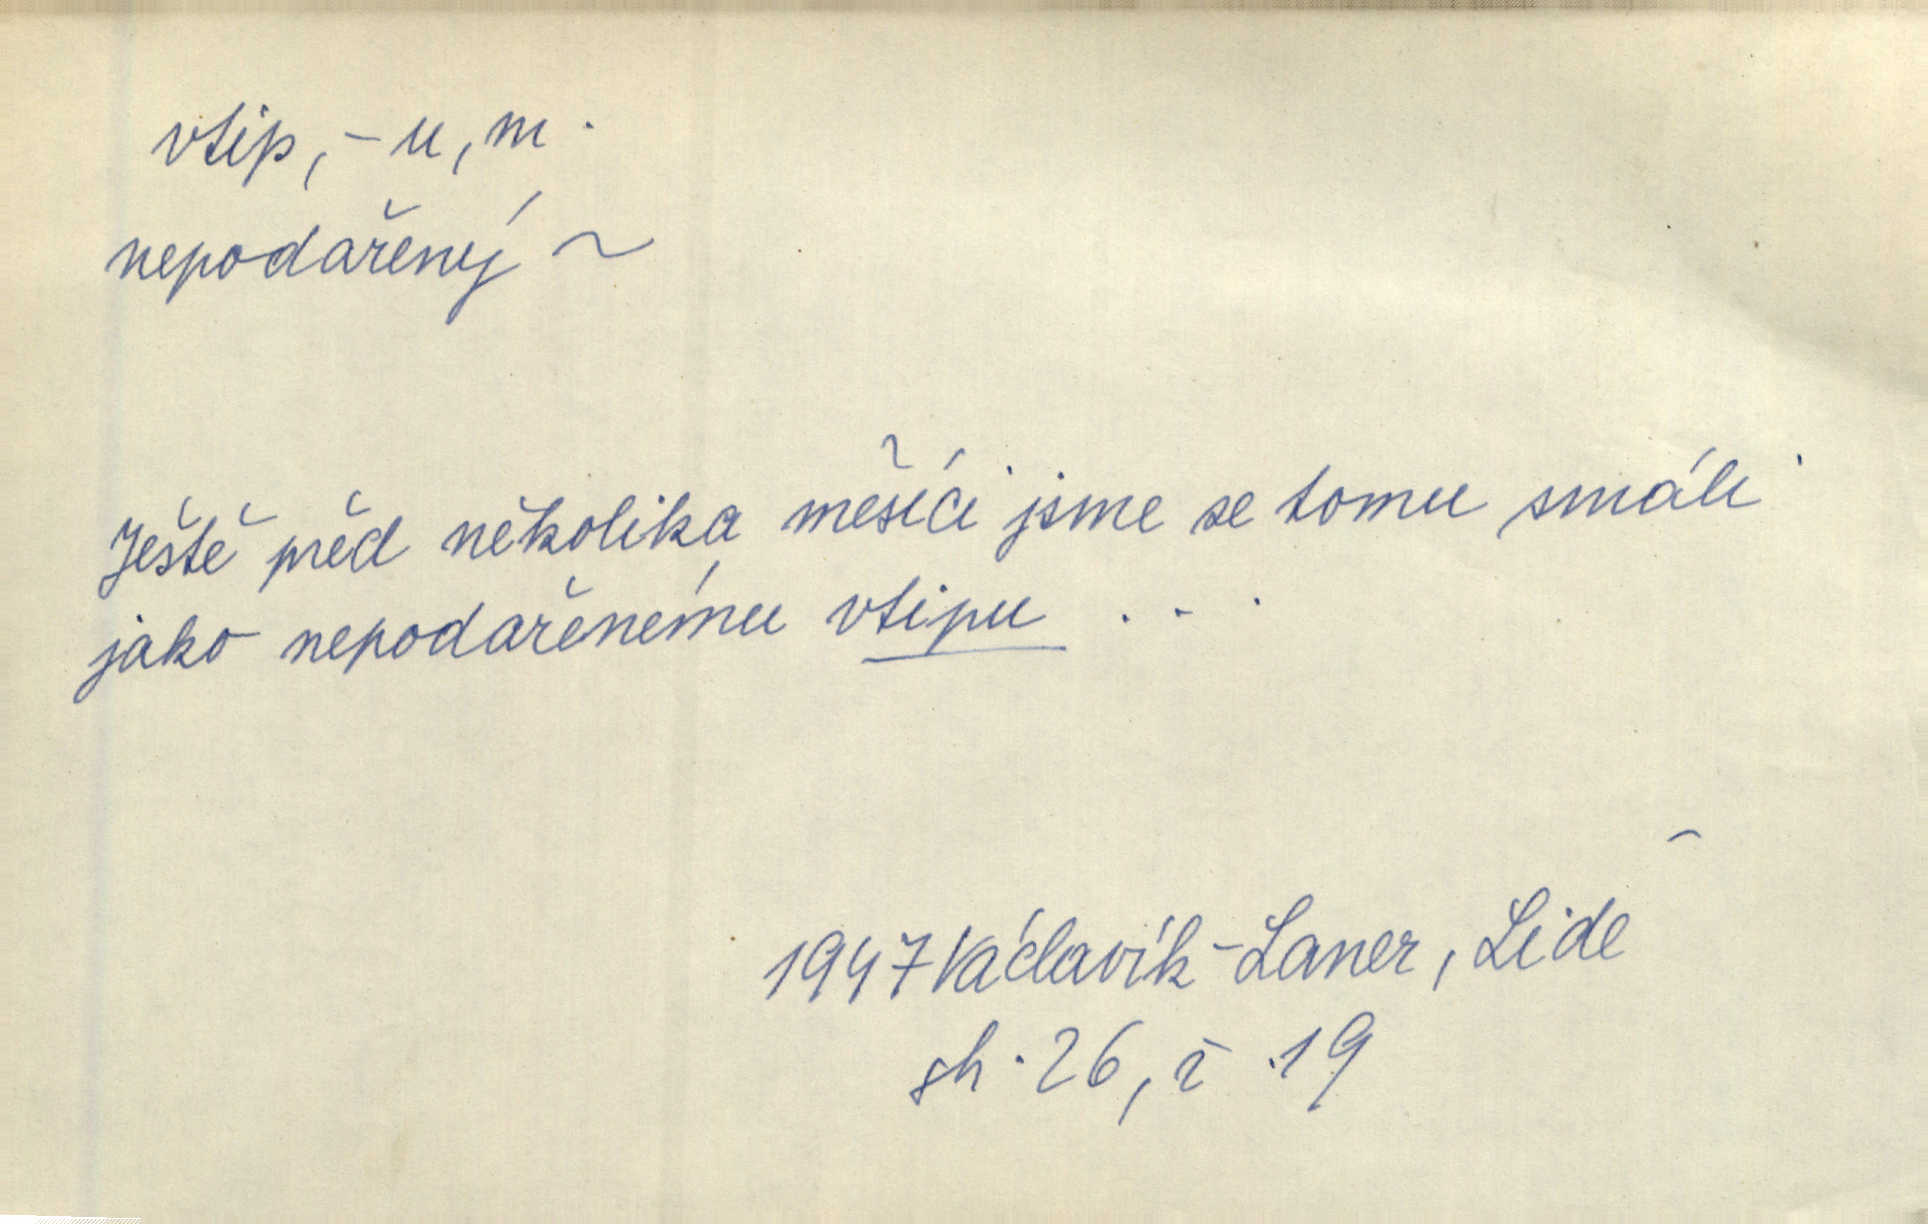 vtip, -u, m.
nepodařený ~
Ještě před několika měsíci jsme se tomu smáli
jako nepodařenému vtipu ...
1947 Václavík-Laner, Lidé
sh. 26, ř. 19